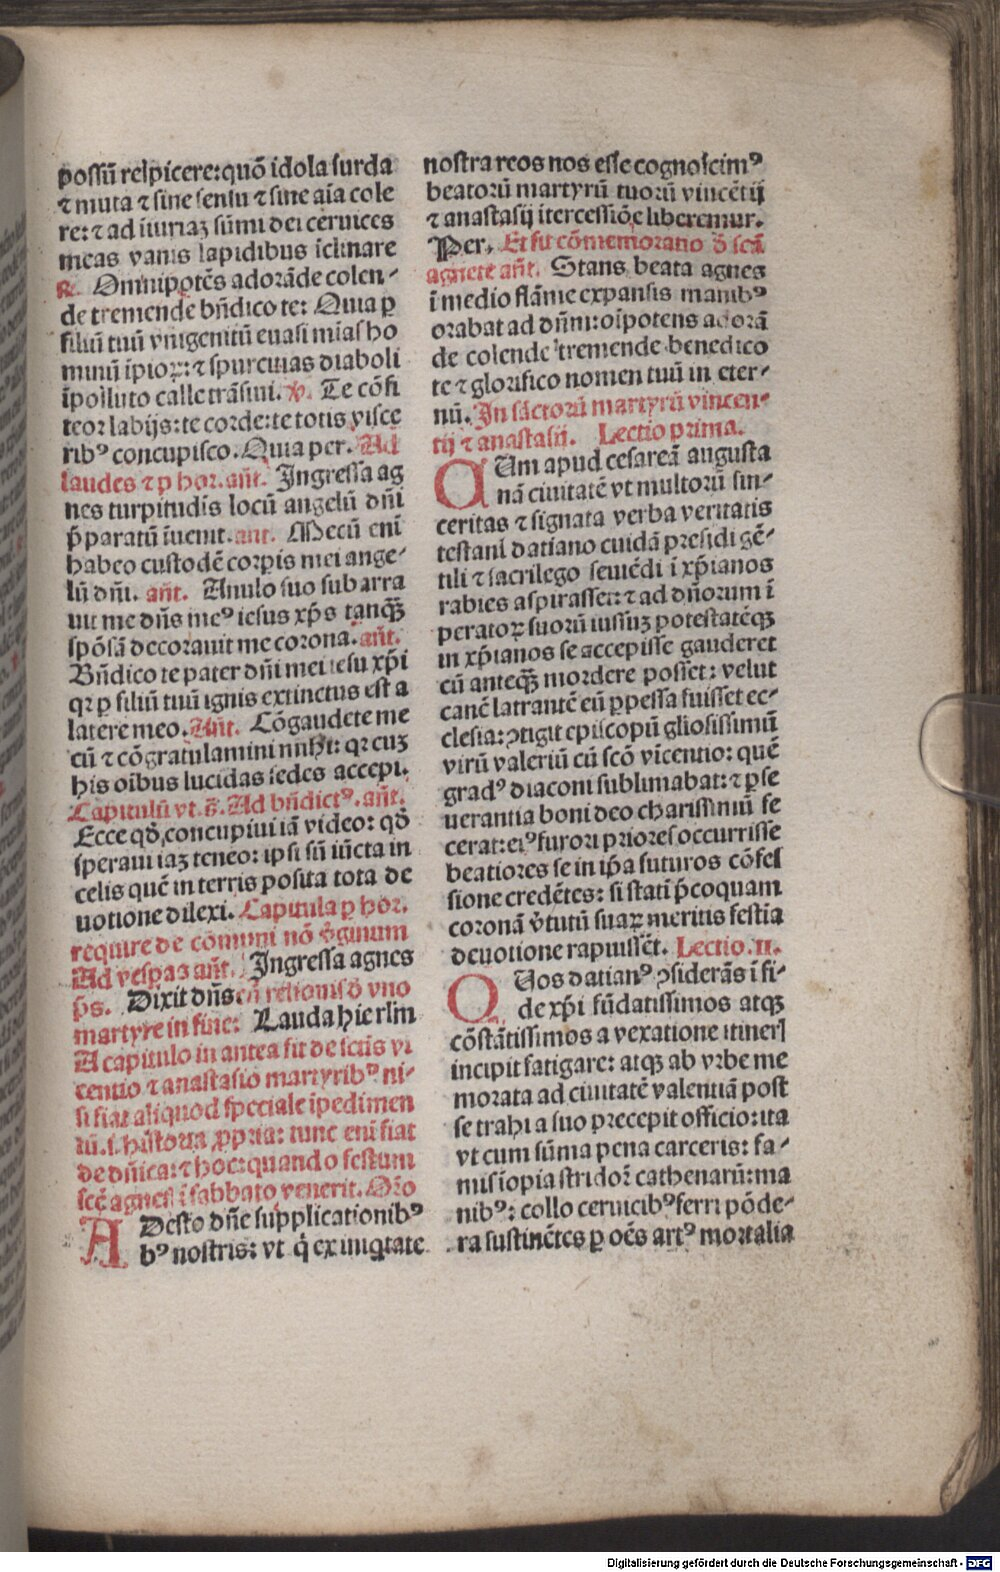 possũ respicere: quõ idola surda
⁊ muta ⁊ sine sensu ⁊ sine aĩa cole
re: ⁊ ad iniuriaʒ sũmi dei ceruices
meas vanis lapidibus ĩclinare
℟. Omnipotẽs adorãde colen-
de tremende bñdico te: Quia ꝑ
filiũ tuũ vnigenitũ euasi mĩas ho
minũ ĩpioꝝ: ⁊ spurcitias diaboli
ĩpolluto calle trãsiui. ℣. Te cõfi
teor labijs: te corde: te totis visce
ribꝰ concupisco. Quia per. Ad
laudes ⁊ p hor. añt. Ingressa ag
nes turpitudis locũ angelũ dñi
p̃paratũ ĩuenit. ant. Mecũ enĩ
habeo custodẽ corpis mei ange-
lũ dñi. añt. Anulo suo subarra
uit me dñs meꝰ iesus xp̃s tanqʒ̃
spõsã decorauit me corona. añt.
Bñdico te pater dñi mei iesu xp̃i
qꝛ ꝑ filiũ tuũ ignis extinctus est a
latere meo. Añt. Cõgaudete me
cũ ⁊ cõgratulamini mihi: qꝛ cuʒ
his oĩbus lucidas sedes accepi.
Capitulũ vt. s̃. Ad bñdictꝰ. añt.
Ecce qð concupiui iã video: qð
speraui iaʒ teneo: ipsi sũ iũcta in
celis quẽ in terris posita tota de
uotione dilexi. Capitula ꝑ hor.
require de comuni nõ v̾ginum
Ad vesꝑas añt. Ingressa agnes
p̃s. Dixit dñs cũ reliquis ð vno
martyre in fine: Lauda hierlm
A capitulo in antea fit de sctis vi
centio ⁊ anastasio martyribꝰ ni-
si fiat aliquod speciale ĩpedimen
tũ. s. historia ꝓpria: tunc eni fiat
de dñica: ⁊ hoc: quando festum
scẽ agnes ĩ sabbato venerit. Or̃o
ADesto dñe supplicationibꝰ
bꝰ nostris: vt q̃ ex iniq̃tate
nostra reos nos esse cognoscimꝰ
beatorũ martyrũ tuorũ vincẽtij
⁊ anastasij ĩtercessiõe liberemur.
Per. Et fit cõmemoratio ð scã
agnete añt. Stans beata agnes
ĩ medio flãme expansis manibꝰ
orabat ad dñm: oĩpotens adorã
de colende tremende benedico
te ⁊ glorifico nomen tuũ in eter-
nũ. In sãctorũ martyrũ vincen-
tij ⁊ anastasij. Lectio prima.
CUm apud cesareã augusta
nã ciuitatẽ vt multorũ sin-
ceritas ⁊ signata verba veritatis
testanĩ datiano cuidã presidi gẽ-
tili ⁊ sacrilego seuiẽdi ĩ xp̃ianos
rabies aspirasset: ⁊ ad dñorum ĩ
peratoꝝ suorũ iussuʒ potestatẽqʒ
in xp̃ianos se accepisse gauderet
cũ anteqʒ̃ mordere posset: velut
canẽ latrantẽ eũ ꝑpessa fuisset ec-
clesia: ɔtigit episcopũ gliosissimũ
virũ valeriũ cũ scõ vĩcentio: quẽ
gradꝰ diaconi sublimabat: ⁊ ꝑse
uerantia boni deo charissimũ fe
cerat: eiꝰ furori priores occurrisse
beatiores se in ip̃a futuros cõfes
sione credẽtes: si stati p̃coquam
coronã v̾tutũ suaꝝ meritis festia
deuotione rapuissẽt. Lectio. II.
QUos datianꝰ ɔsiderãs ĩ fi-
de xp̃i fũdatissimos atqʒ
cõstãtissimos a vexatione itineris
incipit fatigare: atqʒ ab vrbe me
morata ad ciuitatẽ valentiã post
se trahi a suo precepit officio: ita
vt cum sũma pena carceris: fa-
mis iopia stridor̃ cathenarũ: ma
nibꝰ: collo ceruicibꝰ ferri põde-
ra sustinẽtes ꝑ oẽs artꝰ mortalia
Digitalisierung gefördert durch die Deutsche Forschungsgemeinschaft - DFG